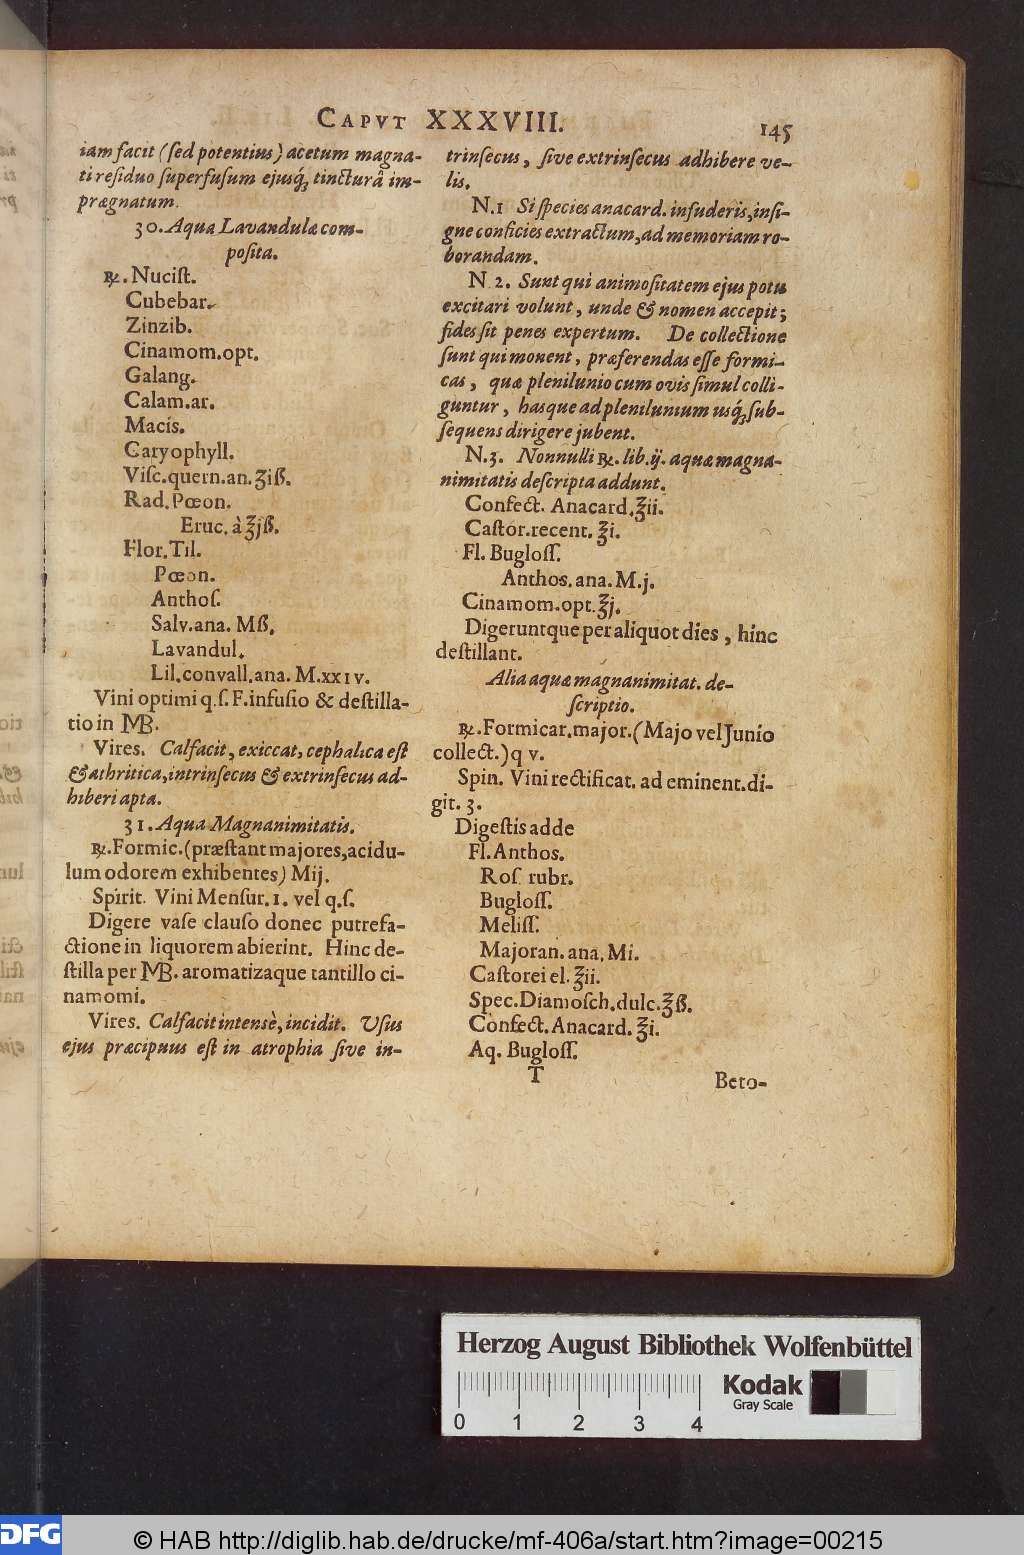 CAPVT XXXVIII.
145
iam facit (sed potentius) acetum magna-
ti residuo superfusum ejusq́; tincturâ im-
prægnatum.
30. Aqua Lavandulæ com-
posita.
℞. Nucist.
Cubebar.
Zinzib.
Cinamom. opt.
Galang.
Calam. ar.
Macis.
Caryophyll.
Visc. quern. an. ʒiß.
Rad. Pœon.
Eruc. à ℥jß.
Flor. Til.
Pœon.
Anthos.
Salv. ana. Mß.
Lavandul.
Lil. convall. ana. M. xxiv.
Vini optimi q. s. F. infusio & destilla-
tio in MB.
Vires. Calfacit, exiccat, cephalica est
& athritica, intrinsecus & extrinsecus ad-
hiberi apta.
31. Aqua Magnanimitatis.
℞. Formic. (præstant majores, acidu-
lum odorem exhibentes) Mij.
Spirit. Vini Mensur. 1. vel q. s.
Digere vase clauso donec putrefa-
ctione in liquorem abierint. Hinc de-
stilla per MB. aromatizaque tantillo ci-
namomi.
Vires. Calfacit intensè, incidit. Usus
ejus præcipuus est in atrophia sive in-
trinsecus, sive extrinsecus adhibere ve-
lis.
N. 1 Si species anacard. infuderis, insi-
gne conficies extractum, ad memoriam ro-
borandam.
N. 2. Sunt qui animositatem ejus potu
excitari volunt, unde & nomen accepit;
fides sit penes expertum. De collectione
sunt qui monent, præferendas esse formi-
cas, quæ plenilunio cum ovis simul colli-
guntur, hasque ad plenilunium usq́; sub-
sequens dirigere jubent.
N. 3. Nonnulli ℞. lib. ij. aquæ magna-
nimitatis descripta addunt.
Confect. Anacard. ℥ii.
Castor. recent. ℥i.
Fl. Bugloss.
Anthos. ana. M. j.
Cinamom. opt. ℥j.
Digeruntque per aliquot dies, hinc
destillant.
Alia aquæ magnanimitat. de-
scriptio.
℞. Formicar. major. (Majo vel Junio
collect.) q v.
Spin. Vini rectificat. ad eminent. di-
git. 3.
Digestis adde
Fl. Anthos.
Ros. rubr.
Bugloss.
Meliss.
Majoran. ana. Mi.
Castorei el. ℥ii.
Spec. Diamosch. dulc. ℥ß.
Confect. Anacard. ℥i.
Aq. Bugloss.
T
Beto-
Herzog August Bibliothek Wolfenbüttel
Kodak
Gray Scale
0 1 2 3 4
DFG
© HAB http://diglib.hab.de/drucke/mf-406a/start.htm?image=00215